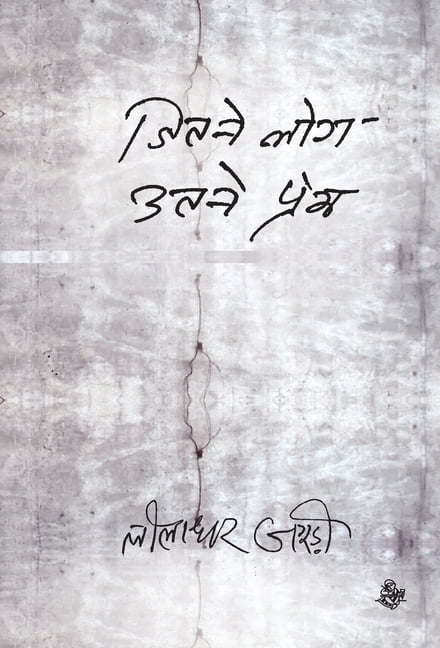 जितने लोग
उतने प्रेम
लीलाधर जगूड़ी